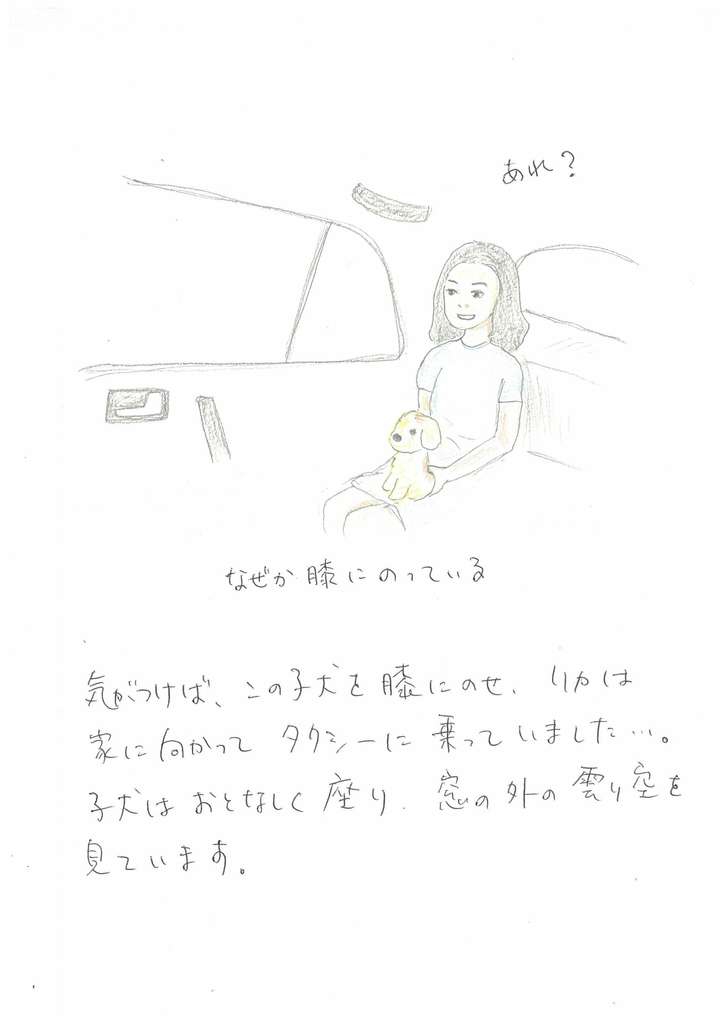 あれ?
なぜか膝にのっている
気がつけば、この子犬を膝にのせ、リカは
家に向かってタクシーに乗っていました…。
子犬はおとなしく座り、窓の外の曇り空を
見ています。